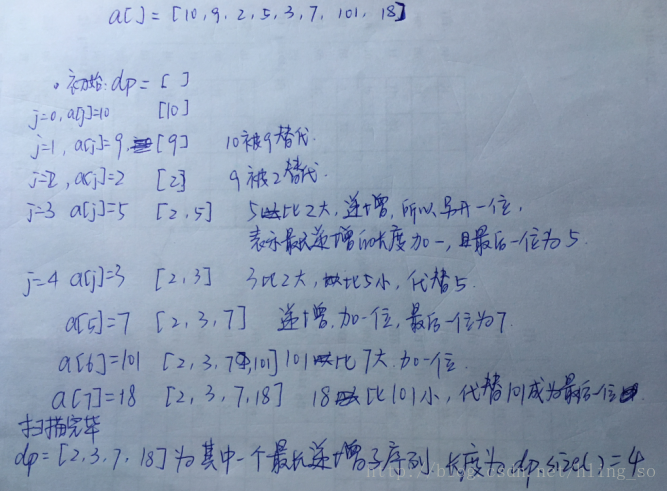 a[] = [10, 9, 2, 5, 3, 7, 101, 18]
初始: dp = [ ]
j=0, a[j]=10 [10]
j=1, a[j]=9, [9] 10被9替代.
j=2, a[j]=2 [2] 9被2替代.
j=3 a[j]=5 [2, 5] 5比2大, 递增, 所以另开一位,
表示最长递增的长度加一, 且最后一位为5.
j=4 a[j]=3 [2, 3] 3比2大, 比5小, 代替5.
a[5]=7 [2, 3, 7] 递增, 加一位, 最后一位为7.
a[6]=101 [2, 3, 7, 101] 101比7大, 加一位.
a[7]=18 [2, 3, 7, 18] 18比101小, 代替101成为最后一位.
扫描完毕
dp = [2, 3, 7, 18] 为其中一个最长递增子序列, 长度为dp.size() = 4